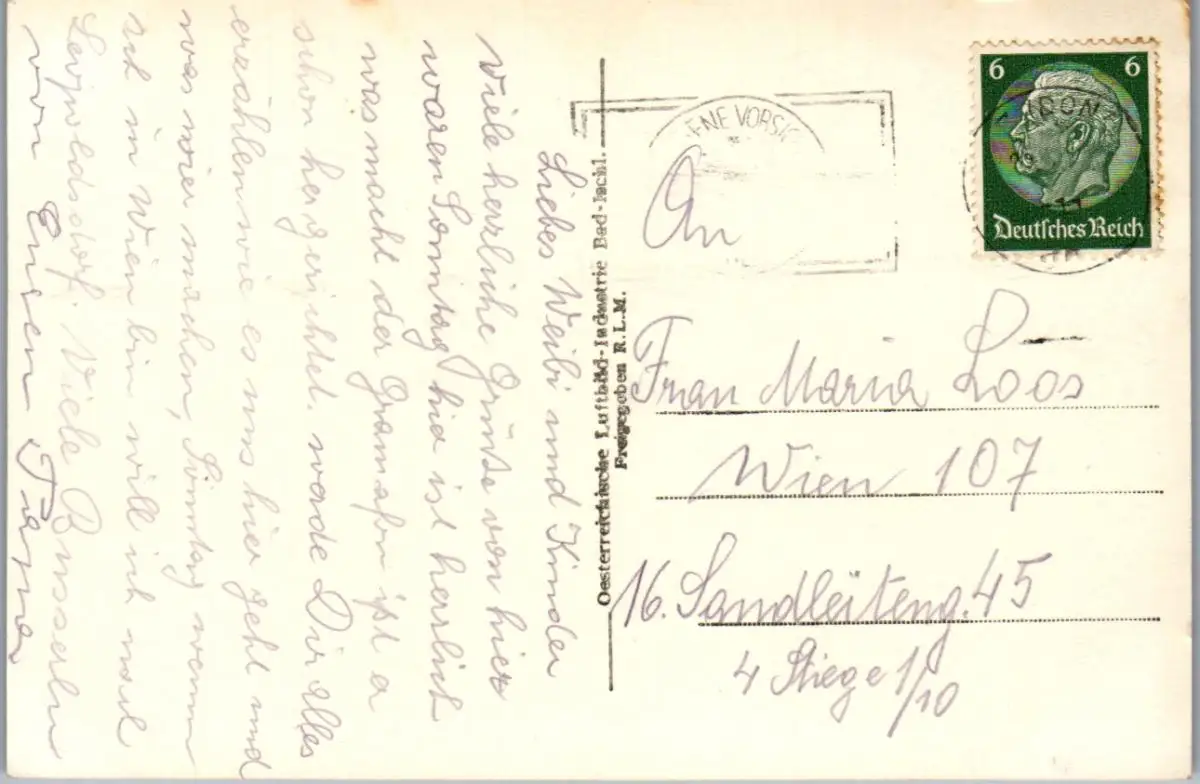 Liebes Weibi und Kinder
Viele herzliche Grüße von hier
waren Sonntag hia ist herrlich
was macht der Gramafon ist er
schon hergerichtet. werde Dir alles
erzählen wie es uns hier geht und
was wier machen, Sonntag wenn
ich in Wien bin will ich mal
Leopoldsdorf. Viele Bussserln
von Euren Papa
Oesterreichische Luftbild-Industrie Bad-Ischl.
Freigegeben R.L.M.
6 6
Deutsches Reich
An
Frau Maria Loos
Wien 107
16. Sandleiteng. 45
4 Stiege 1/10